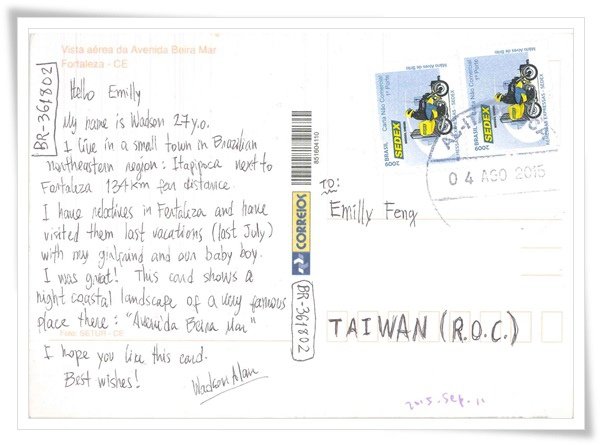 Vista aérea da Avenida Beira Mar
Fortaleza - CE
BR-361802
Hello Emilly
My name is Wadson 27 y.o.
I live in a small town in Brazilian
northeastern region: Itapipoca next to
Fortaleza 134km far distance.
I have relatives in Fortaleza and have
visited them last vacations (last July)
with my girlfriend and our baby boy.
I was great! This card shows a
night coastal landscape of a very famous
place there: "Avenida Beira Mar"
Foto: SETUR - CE
I hope you like this card.
Best wishes!
Wadson Alan
851604110
CORREIOS
BR-361802
Carta Não Comercial
1º Porte
Mário Alves de Brito
SEDEX
BRASIL 2009
Carta Não Comercial
1º Porte
Mário Alves de Brito
SEDEX
BRASIL 2009
04 AGO 2015
TO:
Emilly Feng
TAIWAN (R.O.C.)
2015. Sep. 11